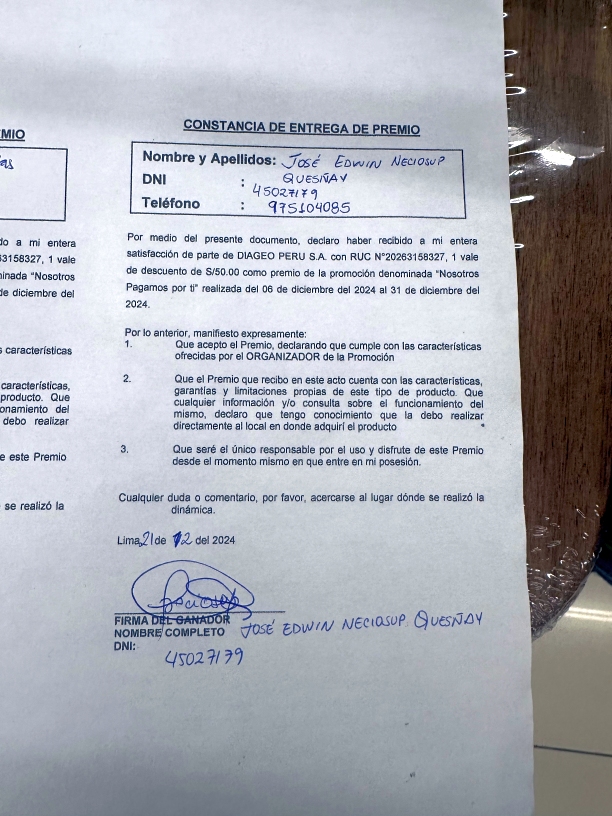 MIO
do a mi entera
63158327, 1 vale
minada "Nosotros
de diciembre del
s características
características,
producto. Que
onamiento del
debo realizar
e este Premio
se realizó la
CONSTANCIA DE ENTREGA DE PREMIO
Nombre y Apellidos: JOSÉ EDWIN NECIOSUP
QUESÑAY
DNI :
45027179
Teléfono : 975104085
Por medio del presente documento, declaro haber recibido a mi entera
satisfacción de parte de DIAGEO PERU S.A. con RUC N°20263158327, 1 vale
de descuento de S/50.00 como premio de la promoción denominada "Nosotros
Pagamos por ti" realizada del 06 de diciembre del 2024 al 31 de diciembre del
2024.
Por lo anterior, manifiesto expresamente:
1. Que acepto el Premio, declarando que cumple con las características
ofrecidas por el ORGANIZADOR de la Promoción
2. Que el Premio que recibo en este acto cuenta con las características,
garantías y limitaciones propias de este tipo de producto. Que
cualquier información y/o consulta sobre el funcionamiento del
mismo, declaro que tengo conocimiento que la debo realizar
directamente al local en donde adquirí el producto
3. Que seré el único responsable por el uso y disfrute de este Premio
desde el momento mismo en que entre en mi posesión.
Cualquier duda o comentario, por favor, acercarse al lugar dónde se realizó la
dinámica.
Lima, 21 de 12 del 2024
Neciosup
FIRMA DEL GANADOR
NOMBRE COMPLETO JOSÉ EDWIN NECIOSUP QUESÑAY
DNI:
45027179